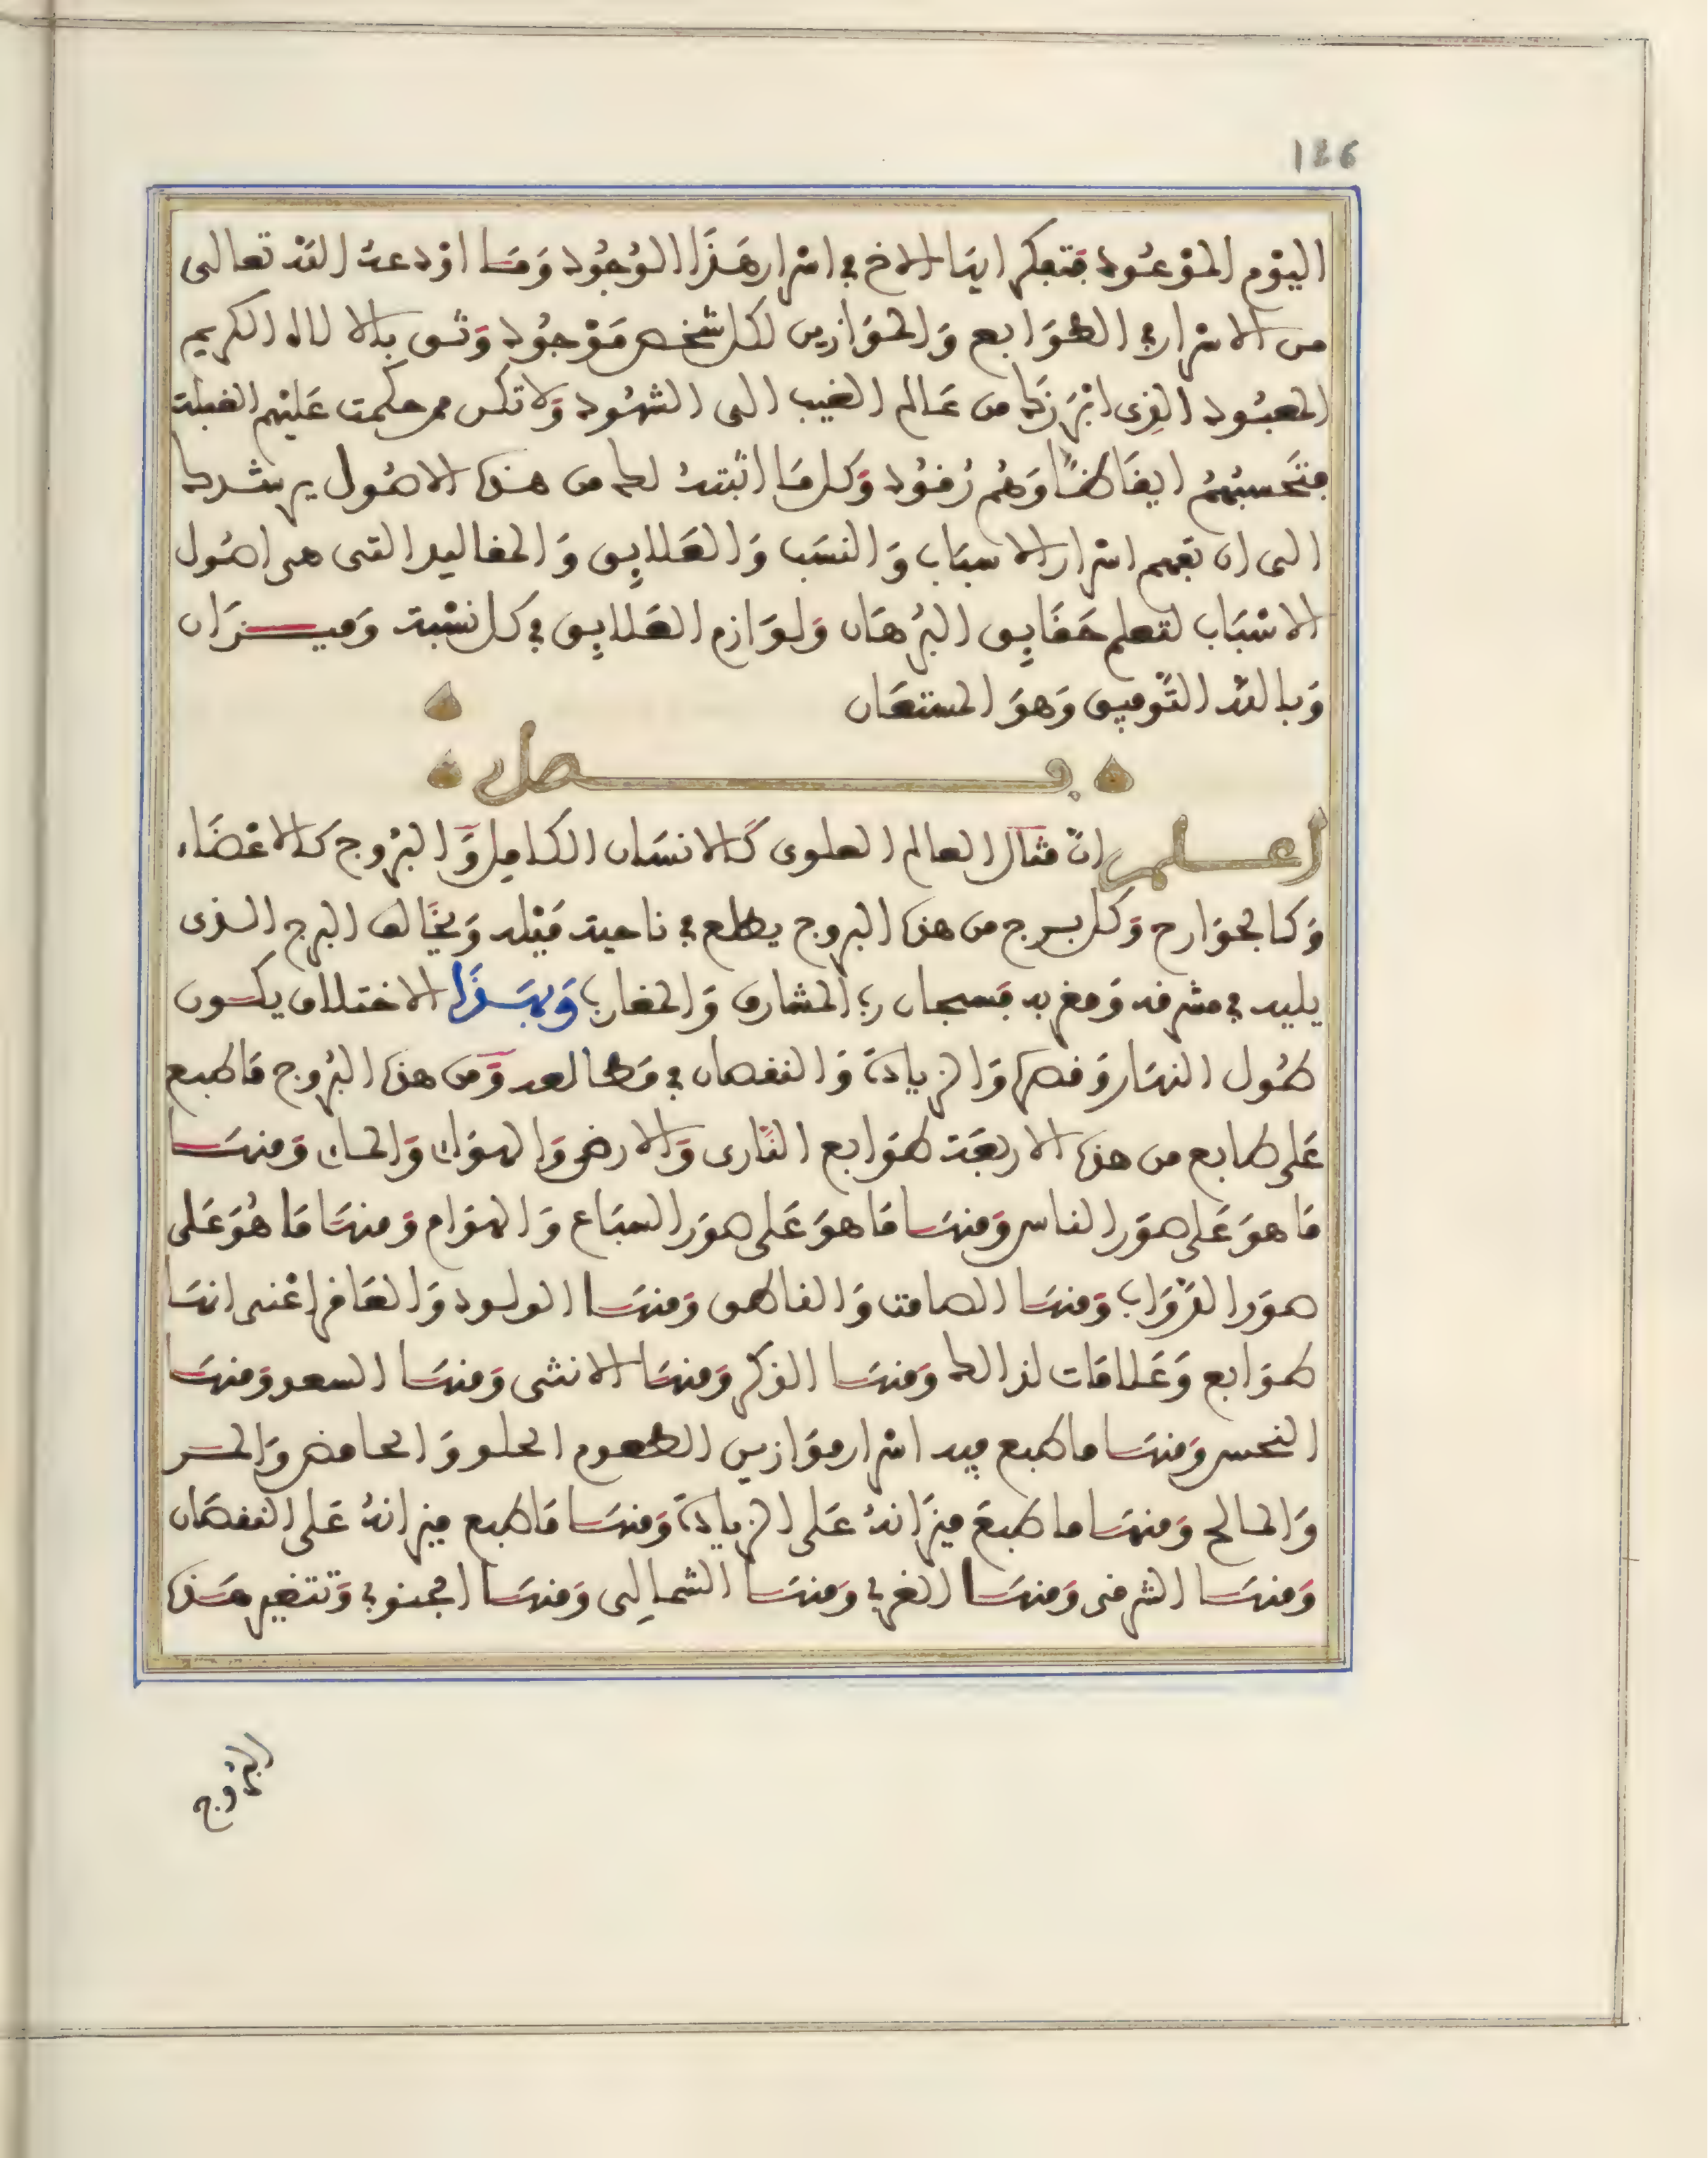 126
اليوم الموعود فتفكر ايها الاخ في اسرار هذا الوجود وما اودعه الله تعالى
من الاسرار في الطوابع والموازين لكل شخص موجود وثق بالالاه الكريم
المعبود الذي ابرزك من عالم الغيب الى الشهود ولا تكن ممن حكمت عليهم الغفلة
فتحسبهم ايقاظا وهم رقود وكل ما اثبته لك من هذه الاصول يرشدك
الى ان تفهم اسرار الاسباب والنسب والعلايق والمقاليد التي هي اصول
الاسباب لتعلم حقايق البرهان ولوازم العلايق في كل نسبة وميزان
وبالله التوفيق وهو المستعان
فصل
اعلم ان مثال العالم العلوي كالانسان الكامل والبروج كالاعضاء
وكالجوارح وكل برج من هذه البروج يطلع في ناحية ميله ويخالف البرج الذي
يليه في مشرقه ومغربه فسبحان رب المشارق والمغارب وبهذا الاختلاف يكون
طول النهار وقصره والزيادة والنقصان في مطالعه ومن هذه البروج ما طبع
على طابع من هذه الاربعة طوابع الناري والارضي والهوائي والمائي ومنها
ما هو على صور الناس ومنها ما هو على صور السباع والهوام ومنها ما هو على
صور الدواب ومنها الصامت والناطق ومنها الولود والعاقر اعني انها
طوابع وعلامات لذلك ومنها الذكر ومنها الانثى ومنها السعد ومنها
النحس ومنها ما طبع فيه اسرار موازين الطعوم الحلو والحامض والمر
والمالح ومنها ما طبع ميزانه على الزيادة ومنها ما طبع ميزانه على النقصان
ومنها الشرقي ومنها الغربي ومنها الشمالي ومنها الجنوبي وتتغير هذه
البروج